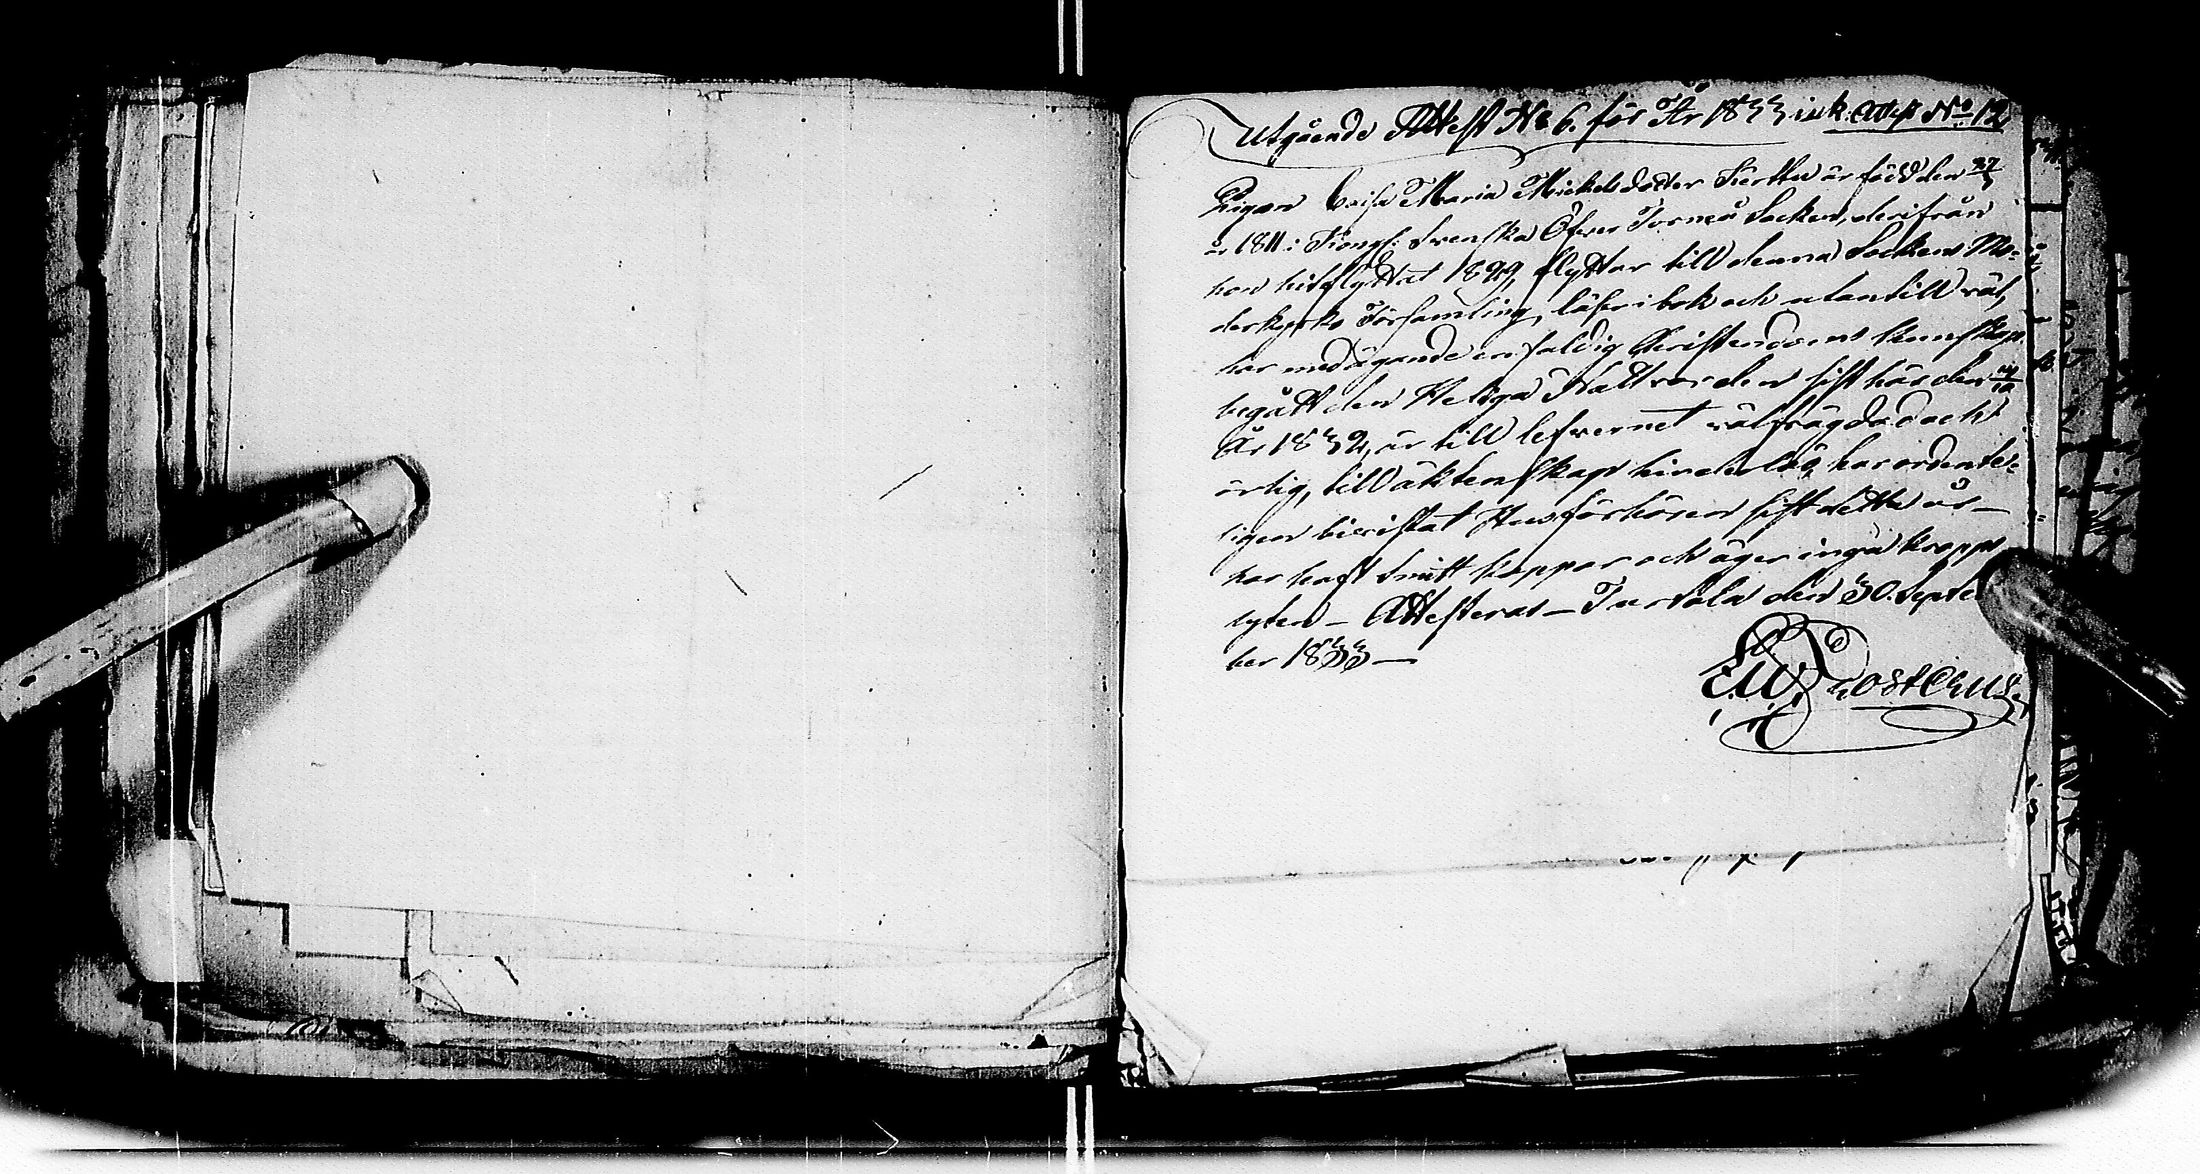 Utgående Attest No 6. för År 1833 ink. Attest No 12
Pigan Caisa Maria Mickelsdotter Kerttu är född den 27/3
år 1811 i Kongl: Svenska Öfver Torneå Socken, derifrån
hon hitflyttat 1829, flyttar till denna Sockens Mo-
derkyrko Församling, läser i bok och utantill väl,
har medägande enfaldig Christendoms kunskap
begått den Heliga Nattvarden sist här den
År 1832, är till lefvernet välfrägdad och
ärlig, till äktenskap hinderlös, har ordente-
ligen bevistat Husförhören sist detta år –
har haft Smittkoppor och äger inga kropps
lyten – Attesteras – Turtola den 30. Septem
ber 1833 –
E.W. Frostérus